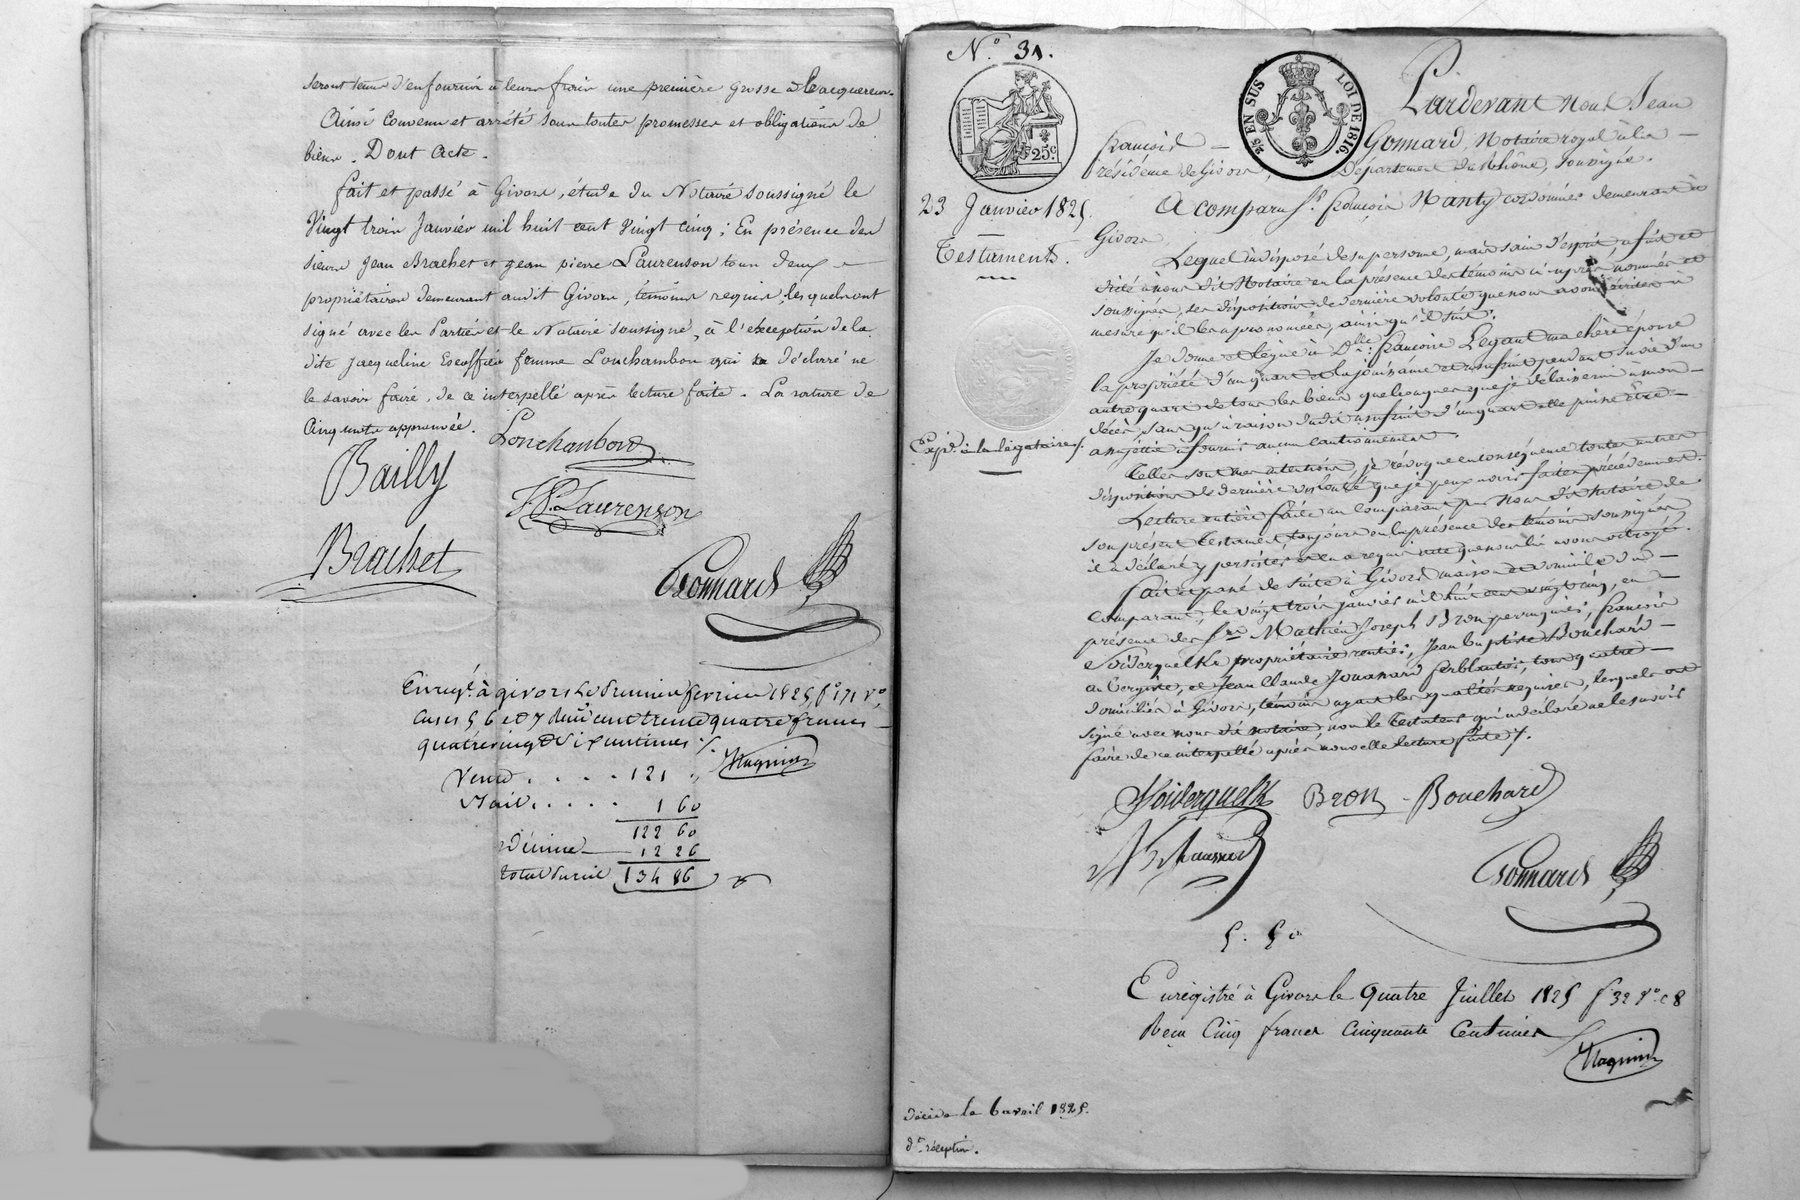 seront tenus d'en fournir à leurs frais une première grosse à l'acquéreur.
Ainsi convenu et arrêté sous toutes promesses et obligations de
biens. Dont Acte.
fait et passé à Givors, étude du Notaire soussigné le
Vingt trois Janvier mil huit cent vingt cinq; En présence des
sieurs Jean Brachet et Jean pierre Laurenson tous deux
propriétaires demeurant audit Givors, témoins requis, lesquels ont
signé avec les Parties et le Notaire soussigné, à l'exception de la
dite Jacqueline Escoffier femme Louchambon qui a déclaré ne
le savoir faire, de ce interpellé après lecture faite. La rature de
Cinq mots approuvée.
Louchambon
Bailly
J.P. Laurenson
Brachet
Gonnard
Enreg.t à givors le premier fevrier 1825, f° 171 v°,
cases 5 6 et 7 Reçu cent trente quatre francs
quatre vingt six centimes
Magnin
Vente . . . . 121 "
Bail . . . . 1 60
122 60
Décime 12 26
total pareil 134 86
N.° 31.
25 EN SUS
LOI DE 1816.
25c
23 Janvier 1825.
Testament.
Exp.on à la légataire
Pardevant Nous Jean
françois Gonnard, Notaire royal à la
résidence de Givors, Département du Rhône, soussigné.
A comparu S.r françois Nanty cordonnier demeurant à
Givors
Lequel indisposé de sa personne, mais sain d'esprit, a fait et
dicté à nous dit Notaire en la présence des témoins ci-après nommés et
soussignés, ses dispositions de dernière volonté que nous avons écrites à
mesure qu'il les a prononcées, ainsi qu'il suit:
Je donne et lègue à D.lle françoise Legant ma chère épouse
la propriété d'un quart et la jouissance et usufruit pendant sa vie d'un
autre quart de tous les biens quelconques que je délaisserai à mon
décès, sans qu'à raison dudit usufruit d'un quart elle puisse être
assujettie à fournir aucun cautionnement.
Telles sont mes intentions, je révoque en conséquence toutes autres
dispositions de dernière volonté que je peux avoir faites précédemment.
Lecture entière faite au comparant par Nous dit Notaire de
son présent testament toujours en la présence des témoins soussignés,
il a déclaré y persister et en a requis acte que nous lui avons octroyé.
Fait et passé de suite à Givors maison et domicile du
comparant, le vingt trois janvier mil huit cent vingt cinq, en
présence des S.rs Mathieu Joseph Bron perruquier, françois
Soiderquelk propriétaire rentier, Jean baptiste Bouchard
aubergiste, et Jean Claude Jouanard ferblantier, tous quatre
domiciliés à Givors, témoins ayant les qualités requises, lesquels ont
signé avec nous dit notaire, non le testateur qui a déclaré ne le savoir
faire de ce interpellé après nouvelle lecture faite.
Soiderquelk Bron Bouchard
Gonnard
5. 50
Enregistré à Givors le quatre Juillet 1825 f° 32 v° c 8
Reçu Cinq francs cinquante Centimes
Magnin
décédé le 6 avril 1825.
d.te réception.